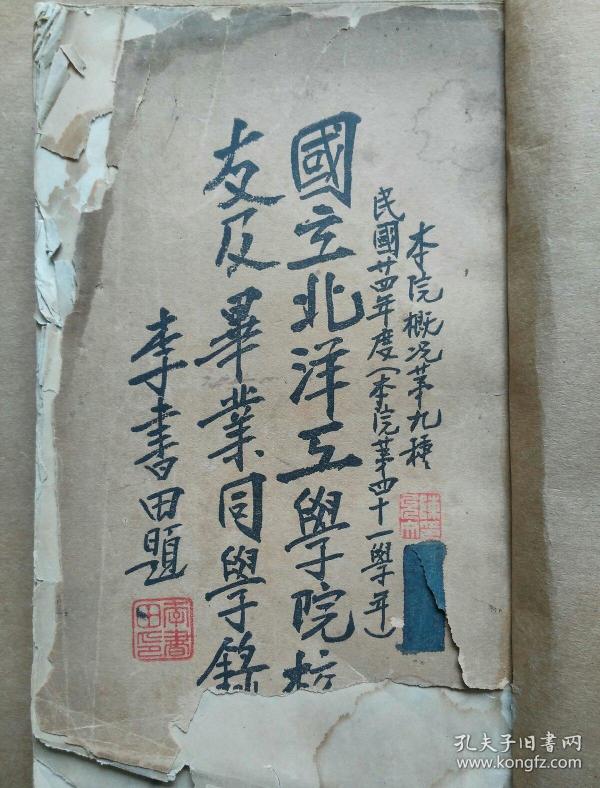 本院概况第九種
民國廿四年度(本院第四十一學年)
國立北洋工學院校
友及畢業同學錄
李書田題
李書田印
孔夫子旧書网
www.kongfz.com